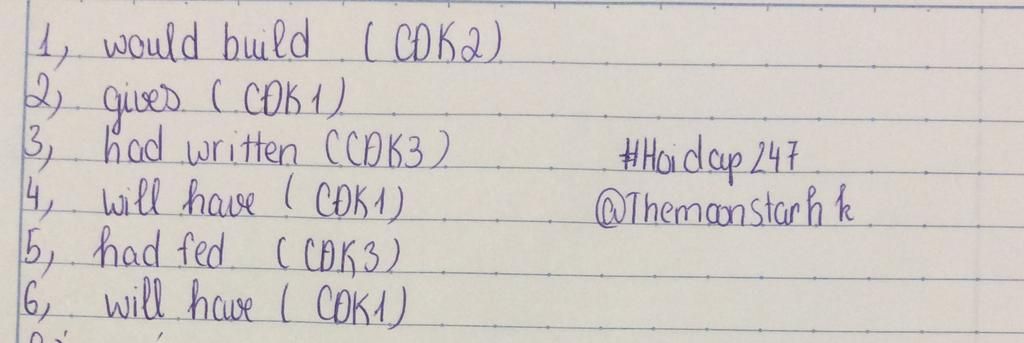 1, would build (CĐK2)
2, gives (CĐK1)
3, had written (CĐK3)
#Hoidap247
4, will have (CĐK1)
@Themoonstarhk
5, had fed (CĐK3)
6, will have (CĐK1)